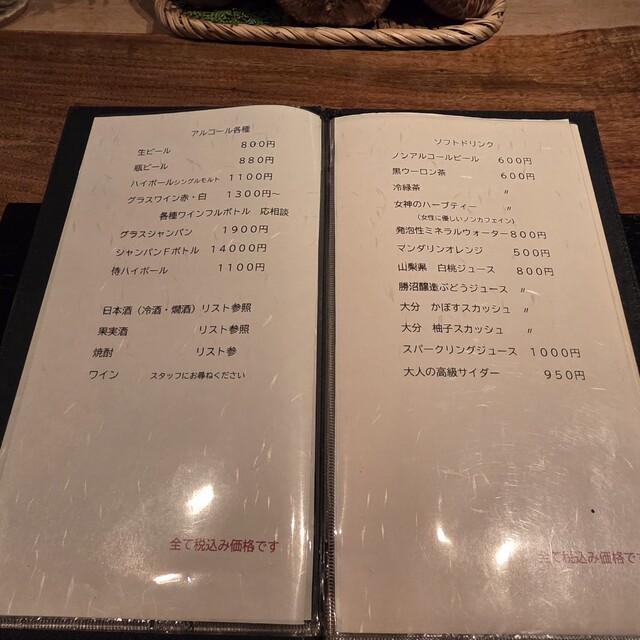 アルコール各種
生ビール 800円
瓶ビール 880円
ハイボールシングルモルト 1100円
グラスワイン赤・白 1300円～
各種ワインフルボトル 応相談
グラスシャンパン 1900円
シャンパンFボトル 14000円
侍ハイボール 1100円
日本酒（冷酒・燗酒）リスト参照
果実酒 リスト参照
焼酎 リスト参
ワイン スタッフにお尋ねください
全て税込み価格です
ソフトドリンク
ノンアルコールビール 600円
黒ウーロン茶 600円
冷緑茶 〃
女神のハーブティー 〃
（女性に優しいノンカフェイン）
発泡性ミネラルウォーター800円
マンダリンオレンジ 500円
山梨県 白桃ジュース 800円
勝沼醸造ぶどうジュース 〃
大分 かぼすスカッシュ 〃
大分 柚子スカッシュ 〃
スパークリングジュース 1000円
大人の高級サイダー 950円
全て税込み価格です